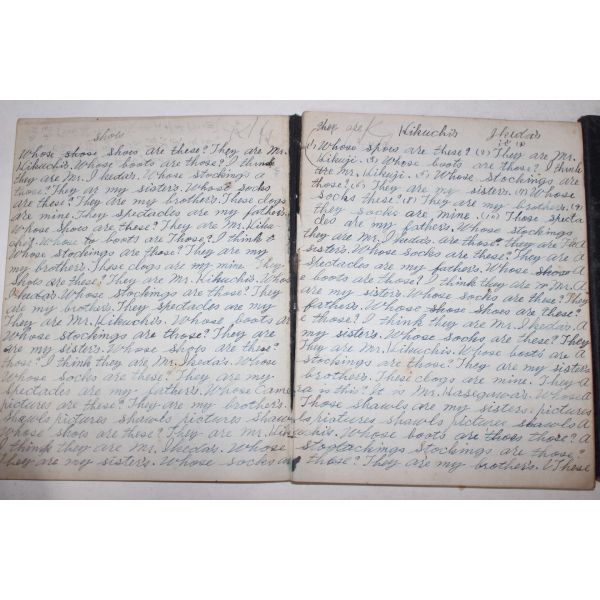 shoes
Whose shoes shoes are these? They are Mr.
Kikuchi's. Whose boots are those? I think
they are Mr. Ikeda's. Whose stockings a
those? They ar my sister's. Whose socks
are these? They are my brother's. These clogs
are mine. They spectacles are my father's.
Whose shoes are these? They are Mr. Kiku
chi's. Whose to boots are Those? I think t
Whose stockings are those? They are my
my brother's. Those clogs are my mine. They
shoes are these? They are Mr. Kikuchi's. Whose
Ikeda's. Whose stockings are those? They
are my brother's. They spectacles are my
They are Mr. Kikuchi's. Whose boots ar
Whose stockings are those? They are
are my sister's. Whose shoes are these?
those? I think they are Mr. Ikeda's. Whose
Whose socks are these? They are my
spectacles are my father's. Whose Came
pictures are these? They are my brother's.
shawls pictures shawls pictures shawls
Whose shoes are these? They are Mr. Kiku
think they are Mr. Ikeda's. Whose
They are my sister's. Whose socks ar
they are Kikuchi's Ikeda's
(1) Whose shoes are these? (2) They are Mr.
Kikuji. (3) Whose boots are those? I think
are Mr. Kikuji. (5) Whose stockings are
those? (6) They are my sisters. (7) Whose
socks these? (8) They are my brothers. (9)
they socks are mine. (10) Those specta
cles are my father's. Whose stockings
they are Mr. Ikeda's are those? they are
sister's. Whose socks are these? They are
spectacles are my father's. Whose shoes
boots are those? I think they are Mr.
are my sister's. Whose socks are these? They
father's. Whose shoes are these?
I think they are Mr. Ikeda.
my sister's. Whose socks are these? They
They are Mr. Kikuchi's. Whose boots are
stockings are those? They are my sister's
brother's. These clogs are mine. They
ra is this? It is Mr. Hasegawa's. Whose
Those shawls are my sisters. pictures
ls pictures shawls picture shawls
chi's. Whose boots are those those?
stockings are those?
those? They are my brother's. Those